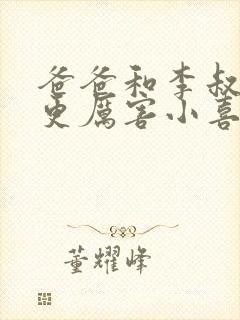 爸爸和李叔
更厲害小喜
董耀峰